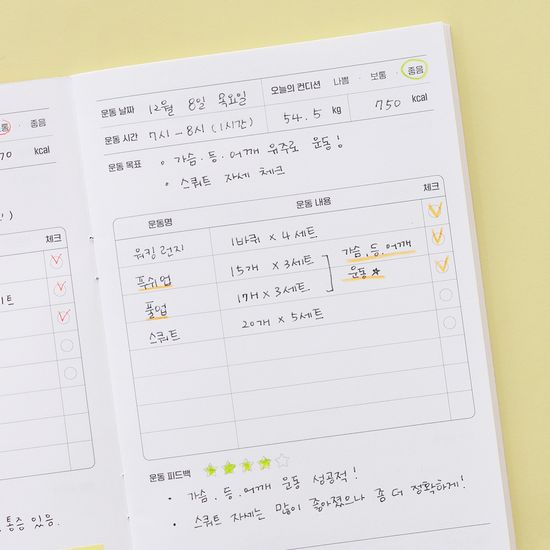 통
· 좋음
70 kcal
)
체크
이트
통증 있음.
운동 날짜 12월 8일 목요일
오늘의 컨디션 나쁨 · 보통 · 좋음
운동 시간 7시 - 8시 (1시간)
54.5 kg 750 kcal
운동 목표 · 가슴.등.어깨 위주로 운동!
· 스쿼트 자세 체크
운동명 운동 내용 체크
워킹런지 1바퀴 × 4세트
푸쉬업 15개 × 3세트 가슴,등.어깨
풀업 17개 × 3세트 운동
스쿼트 20개 × 5세트
운동 피드백
· 가슴.등.어깨 운동 성공적!
· 스쿼트 자세는 많이 좋아졌으나 좀 더 정확하게!